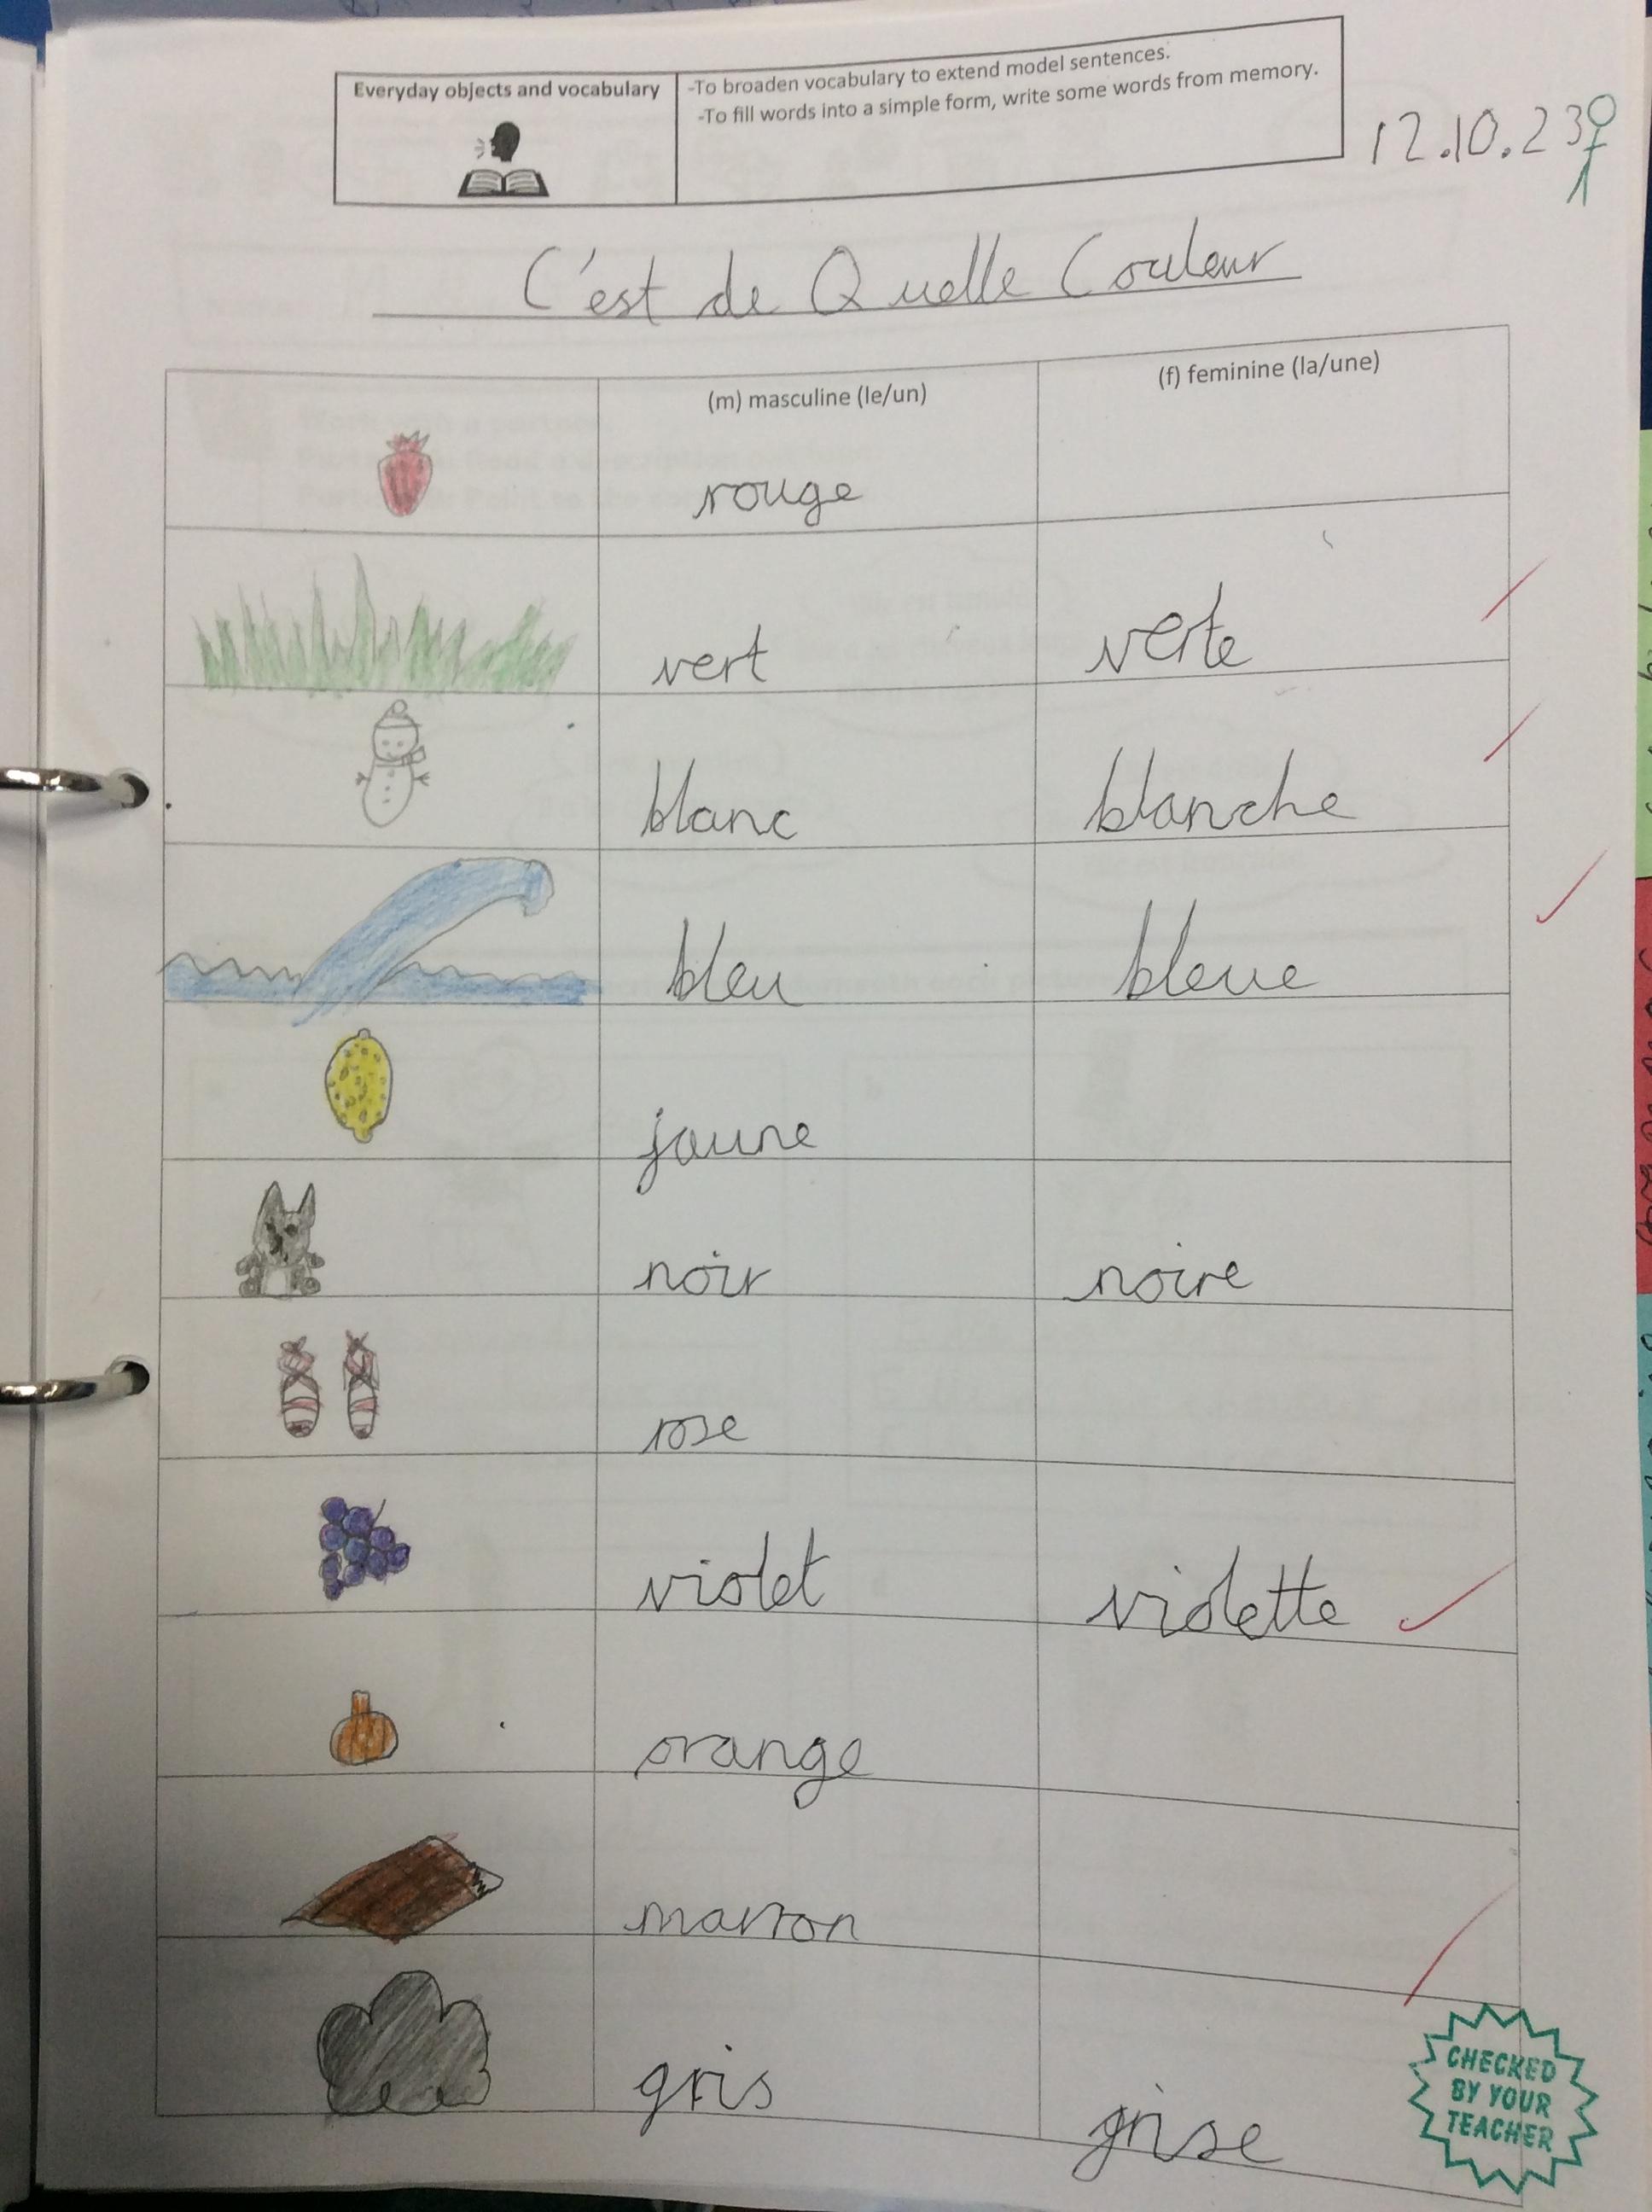 Everyday objects and vocabulary
-To broaden vocabulary to extend model sentences.
-To fill words into a simple form, write some words from memory.
12.10.23
C'est de Quelle Couleur
(m) masculine (le/un)
(f) feminine (la/une)
rouge
vert
verte
blanc
blanche
bleu
bleue
jaune
noir
noire
rose
violet
violette
orange
marron
gris
grise
CHECKED
BY YOUR
TEACHER